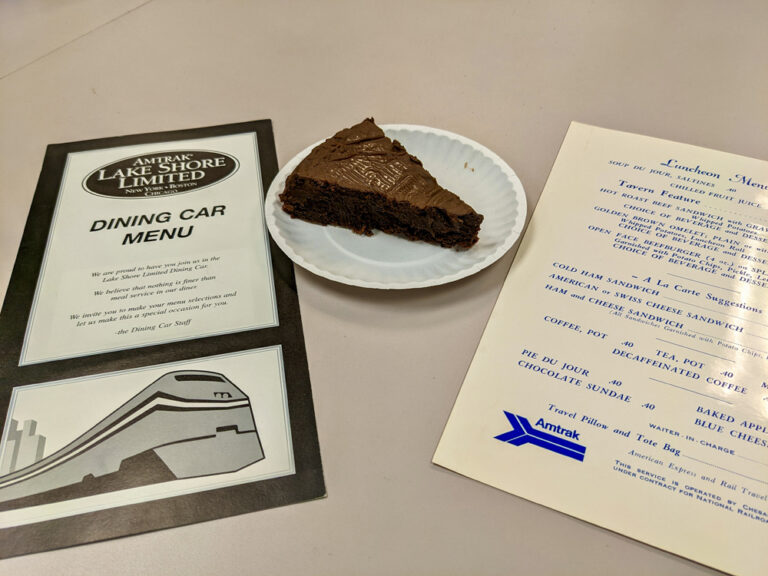 AMTRAK®
LAKE SHORE
LIMITED
NEW YORK • BOSTON
CHICAGO
DINING CAR
MENU
We are proud to have you join us in the
Lake Shore Limited Dining Car.
We believe that nothing is finer than
meal service in our diner.
We invite you to make your menu selections and
let us make this a special occasion for you.
-the Dining Car Staff
Luncheon Menu
SOUP DU JOUR, SALTINES .40
CHILLED FRUIT JUICE
Tavern Feature
HOT ROAST BEEF SANDWICH with
Whipped Potatoes
CHOICE OF BEVERAGE and
GOLDEN BROWN OMELET; PLAIN or
Whipped Potatoes, Luncheon
CHOICE OF BEVERAGE AND
OPEN FACE BEEFBURGER (4 oz.) on
Garnished with Potato Chips, Pickle,
CHOICE OF BEVERAGE AND
– A La Carte Suggestions
COLD HAM SANDWICH
AMERICAN or SWISS CHEESE SANDWICH
HAM and CHEESE SANDWICH
(All Sandwiches Garnished with Potato Chips,
COFFEE, POT .40 TEA, POT .40
DECAFFEINATED COFFEE
PIE DU JOUR .40 BAKED
CHOCOLATE SUNDAE .40 BLUE
Travel Pillow and Tote Bag
WAITER-IN-CHARGE
Amtrak
American Express and Rail Travel
THIS SERVICE IS OPERATED BY
UNDER CONTRACT FOR NATIONAL